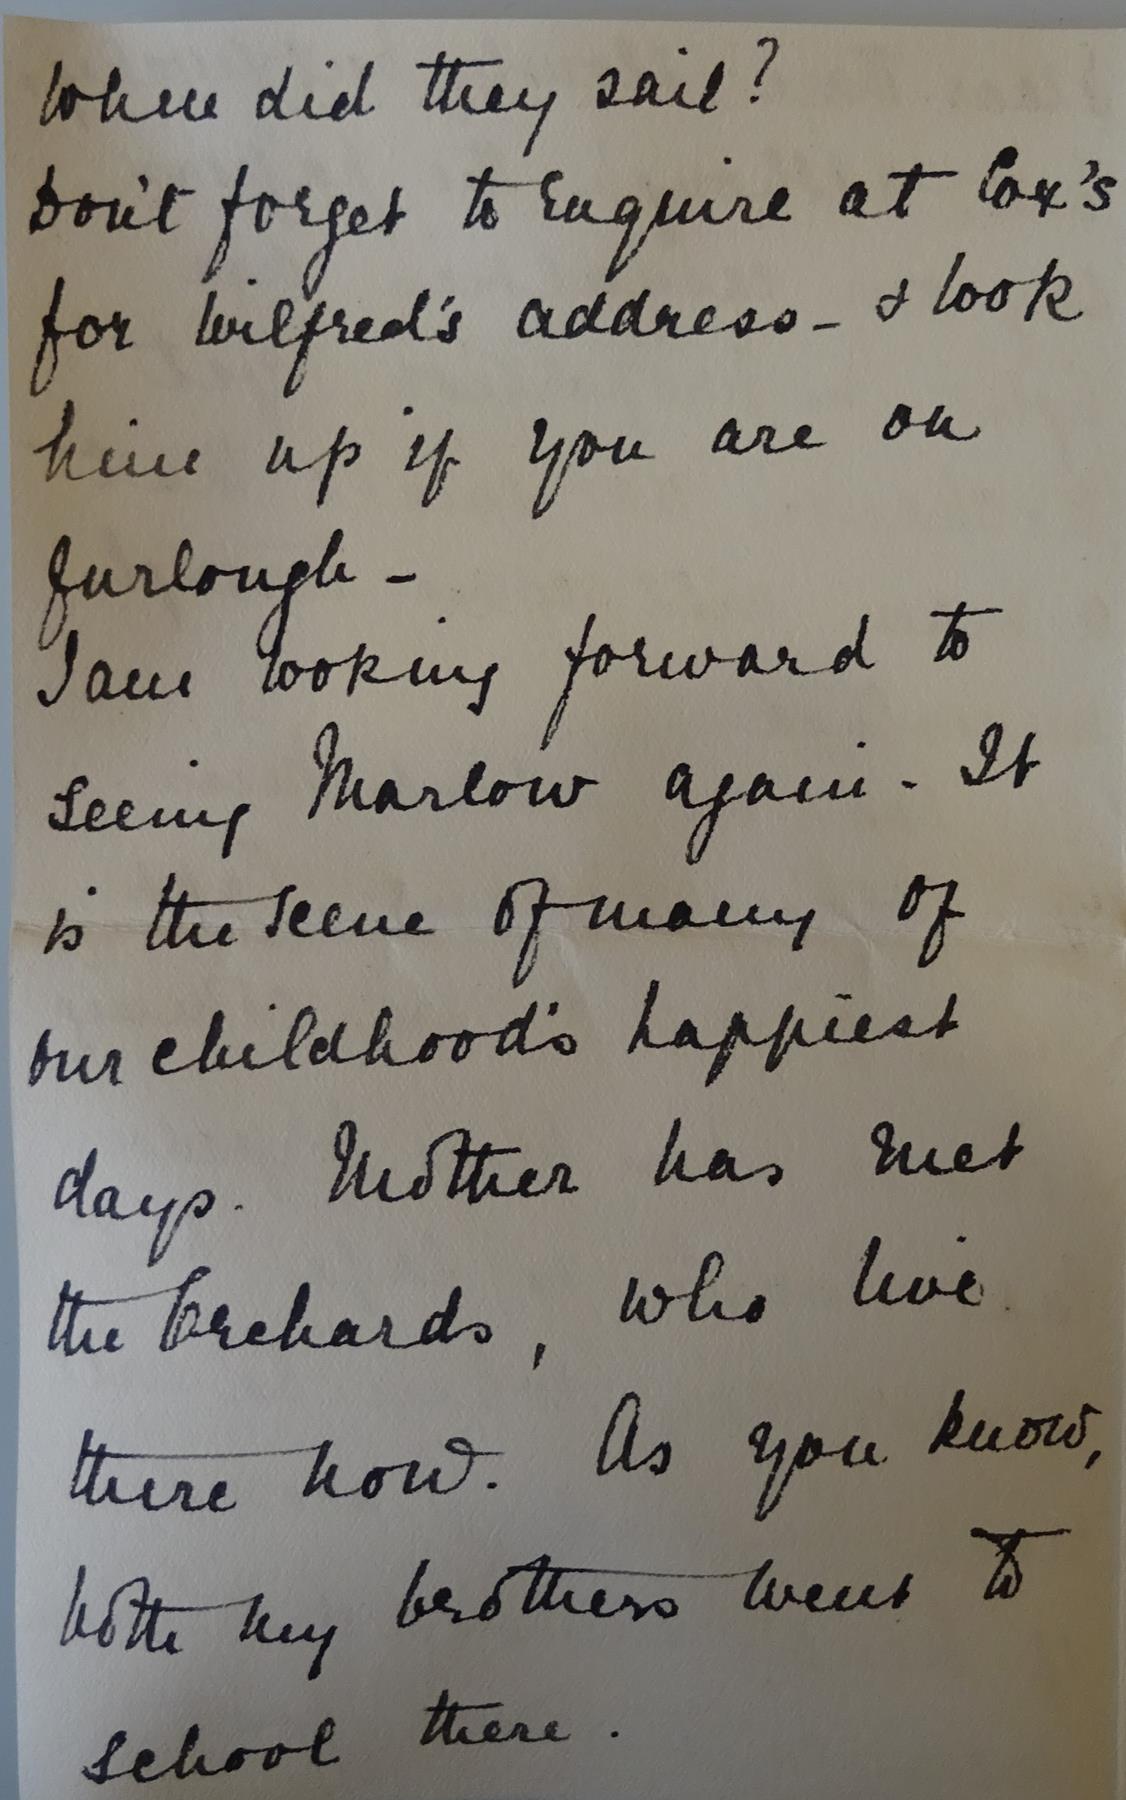 When did they sail?
Don't forget to Enquire at Cox's
for Wilfred's address - & look
him up if you are on
furlough -
I am looking forward to
seeing Marlow again - It
is the scene of many of
our childhood's happiest
days. Mother has met
the Orchards, who live
there now. As you know,
both my brothers went to
school there.